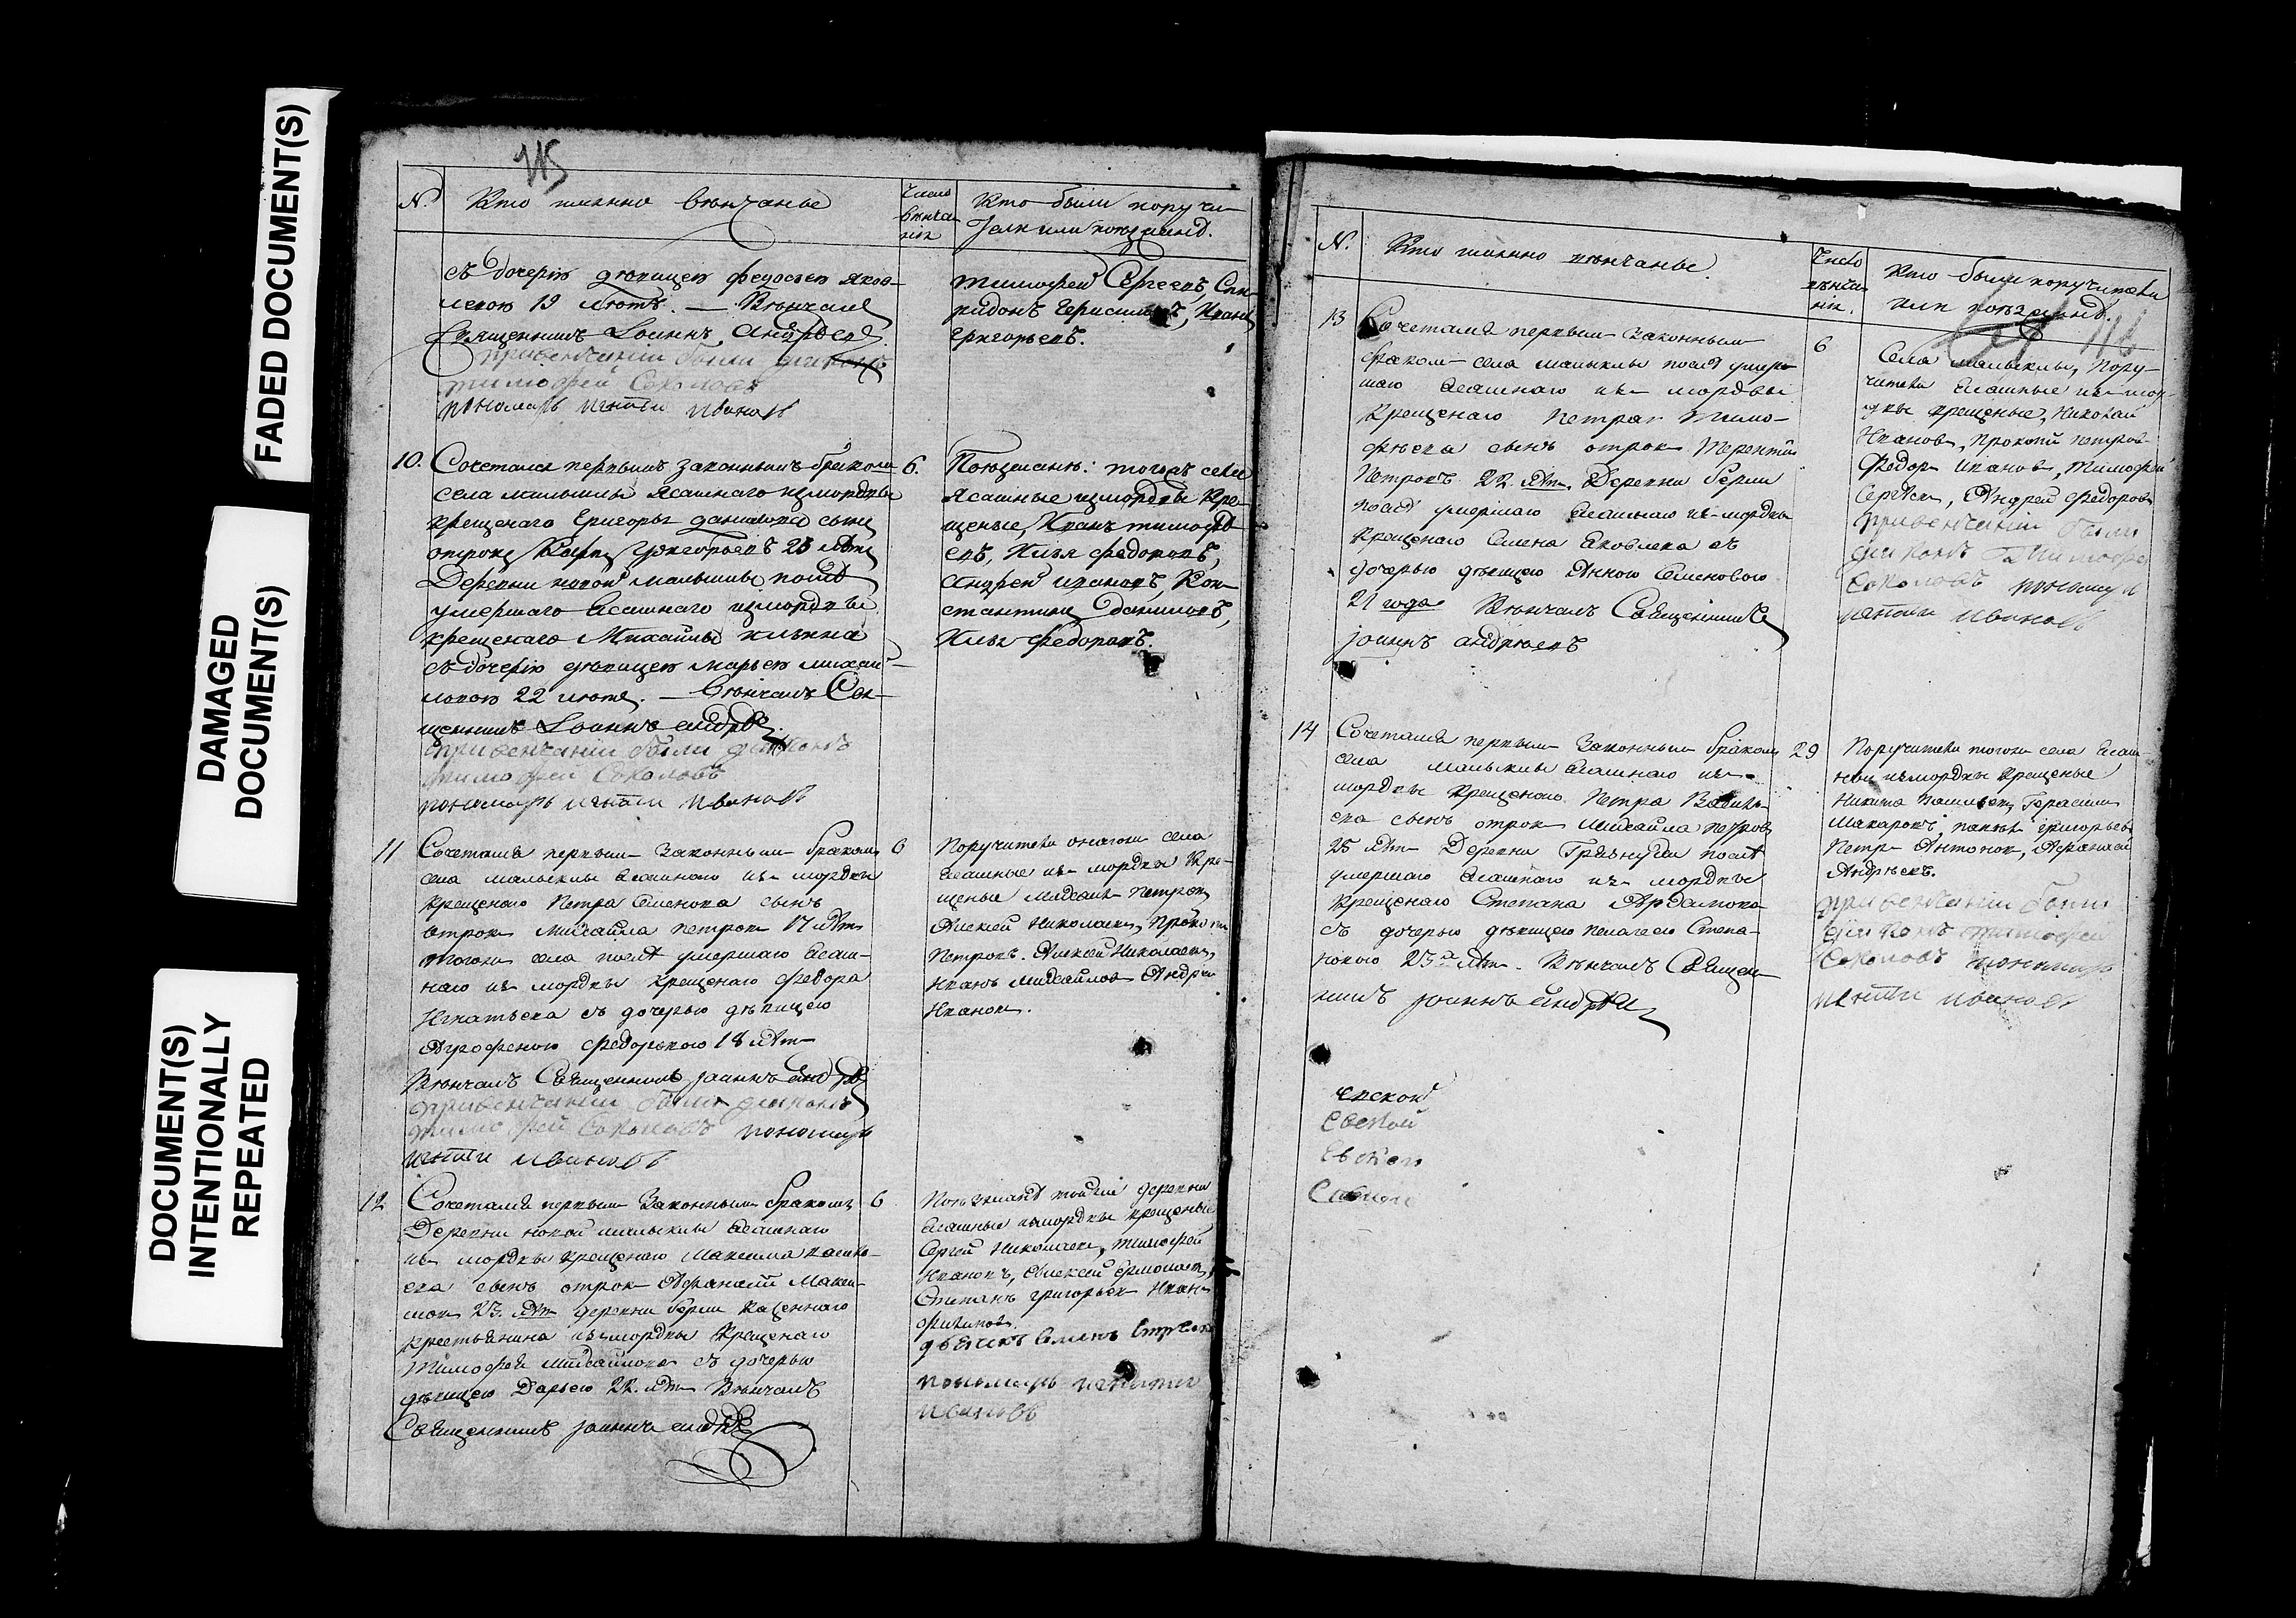 FADED DOCUMENT(S)
DAMAGED
DOCUMENT(S)
DOCUMENT(S)
INTENTIONALLY
REPEATED
115
№. Кто имянно венчанье
Число
венча
нія
Кто были поручи
тели или поѣзжанѣ.
съ дочерью девицею Федосьею Яков
левою 19 летъ. — Венчалъ
Священникъ Іоаннъ Андреевъ
при венчаніи были дияконъ
тимофей Соколовъ
пономарь игнати ивановъ
тимофей Сергеевъ, Спи
ридонъ Герасимовъ, Иванъ
Григорьевъ.
10. Сочетался первымъ законнымъ бракомъ 6.
села малыклы ясашнаго измордвы
крещенаго Григорья данилова сынъ
отрокъ Карпъ Григорьевъ 23 летъ
Деревни новой малыклы послѣ
умершаго ясашнаго измордвы
крещенаго Михайлы ильина
съ дочерью девицею марьею михай
ловою 22 летъ. — Венчалъ Свя
щенникъ Іоаннъ андреевъ
при венчаніи были дияконъ
тимофей Соколовъ
пономарь игнати ивановъ
Поезжанѣ: тогожъ села
Ясашные измордвы Кре
щеные, Иванъ тимофѣ
евъ, Илья федоровъ,
Андрей ивановъ, Кон
стантинъ Даниловъ,
Илья Федоровъ.
11 Сочетался первым законным браком 6
села малыклы ясашнаго из мордвы
крещенаго Петра Семенова сынъ
отрок михайла петров 17 лѣт
тогожъ села послѣ умершаго ясаш
наго из мордвы крещенаго Федора
Игнатьева съ дочерью дѣвицею
Агрофеною Федоровою 18 лѣт
Венчалъ Священникъ іоаннъ андреевъ
при венчаніи были дияконъ
тимофей Соколовъ пономарь
игнати ивановъ
Поручители онагожъ села
ясашные из мордвы Кре
щеные михайла петров
Алексей Николаев, Прокопи
Петровъ. Алексей Николаевъ,
Иванъ михайлов Андрей
Иванов.
12 Сочетался первым Законным браком 6
Деревни новой малыклы ясашнаго
из мордвы крещенаго Максима
ева сынъ отрок Афанасий Макси
мов 23 лѣт деревни берли казеннаго
крестьянина измордвы Крещенаго
Тимофея михайлова съ дочерью
дѣвицею Дарьею 22 лѣт Венчалъ
Священникъ іоаннъ андреевъ
Поезжанѣ тойже деревни
ясашные измордвы крещеные
Сергей Николаев, тимофей
Ивановъ, Алексей Ермолаев,
Степанъ григорьев Иван
филипов.
дьячекъ Семенъ
пономарь игнатии
ивановъ
116
№. Кто имянно венчанье.
Число
венча
нія.
Кто были поручители
или поѣзжанѣ.
13 Сочетался первым законным 6
браком села малыклы послѣ умер
шаго ясашнаго из мордвы
Крещенаго Петра Тимо
фѣева сынъ отрок Терентий
Петровъ 22 лѣт Деревни берли
послѣ умершаго ясашнаго из мордвы
Крещенаго Семена Яковлева съ
дочерью дѣвицею Анною Семеновою
21 года Венчалъ Священникъ
іоаннъ андреевъ
Села малыклы, Пору
чители ясашные из мор
двы крещеные, Николай
Иванов, Прокопи петров
Федор иванов, тимофей
Сергѣев, Андрей федоров
при венчании были
дияконъ Тимофей
Соколовъ пономарь
игнати ивановъ
14 Сочетался первым Законным браком 29
села малыклы ясашнаго из
мордвы Крещенаго Петра Василь
ева сынъ отрок михайла петров
25 лѣт Деревни Грязнухи послѣ
умершаго ясашнаго из мордвы
Крещенаго Степана Ардамова
съ дочерью дѣвицею пелагеею Степа
новою 23 лѣт. Венчалъ Священ
никъ іоаннъ андреевъ
Поручители тогожъ села ясаш
ные измордвы крещеные
Никита васильев, Герасим
Макаровъ, павел григорьев
Петр Антонов, Афанасей
Андреевъ.
при венчаніи были
дияконъ тимофей
Соколовъ пономарь
игнати ивановъ